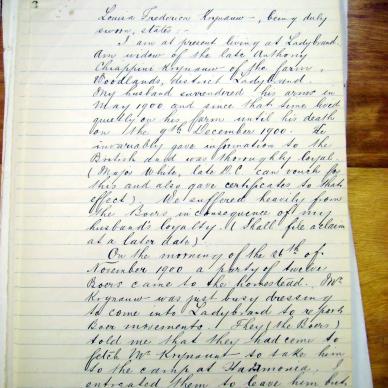 3
Louisa Frederica Krynauw -, being duly
sworn, states :-
I am at present living at Ladybrand.
Am widow of the late Anthony
Chiappini Krynauw of the farm,
Woodlands, district Ladybrand.
My husband surrendered his arms in
May 1900 and since that time lived
quietly on his farm until his death
on the 9th December 1900. He
invariably gave information to the
British and was thoroughly loyal.
(Major White, late D.C. can vouch for
this and also gave certificates to that
effect) We suffered heavily from
the Boers in consequence of my
husband's loyalty. (I shall file a claim
at a later date)
On the morning of the 26th of
November 1900 a party of twelve
Boers came to the homestead. Mr
Krynauw was just busy dressing
to come into Ladybrand to report
Boer movements. They (the Boers)
told me that they had come to
fetch Mr Krynauw to take him
to the camp at
entreated them to leave him but